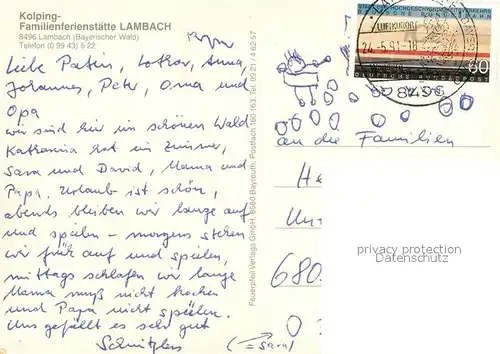 Kolping-
Familienferienstätte LAMBACH
8496 Lambach (Bayerischer Wald)
Telefon (0 99 43) 5 22
Liebe Patin, Lothar, Anna,
Johannes, Peter, Oma und
Opa
wir sind hier im schönen Wald
Katharina hat ein Zimmer,
Sara und David, Mama und
Papa. Urlaub ist schön,
abends bleiben wir lange auf
und spielen – morgens stehen
wir früh auf und spielen,
mittags schlafen wir lange
Mama muß nicht kochen
und Papa nicht spülen.
Uns gefällt es sehr gut
(= Sara)
Feuerpfeil Verlags GmbH, 8580 Bayreuth, Postfach 160163, Tel. 09 21 / 4 62 57
DEUTSCHE BUNDESPOST
60
LUFTKURORT
24.-5.91.-18
8496
an die Familien
Ha
Un
680
privacy protection
Datenschutz